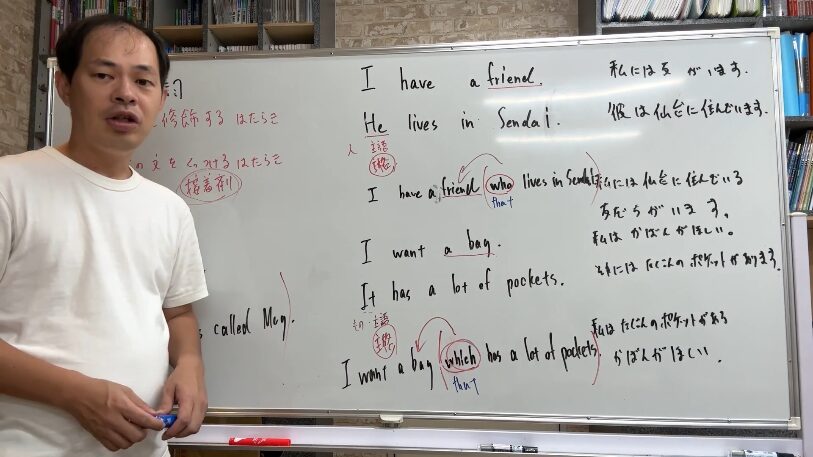 詞
修飾するはたらき
の文をくっつけるはたらき
接着剤
s called Meg.
I have a friend.
私には友がいます.
He lives in Sendai.
彼は仙台に住んでいます.
人 主語
主格
I have a friend (who lives in Sendai)
that
私には仙台に住んでいる
友だちがいます。
I want a bag.
私はかばんがほしい。
It has a lot of pockets.
それにはたくさんのポケットがあります.
もの 主語
主格
I want a bag (which has a lot of pockets)
that
私はたくさんのポケットがある
かばんがほしい。